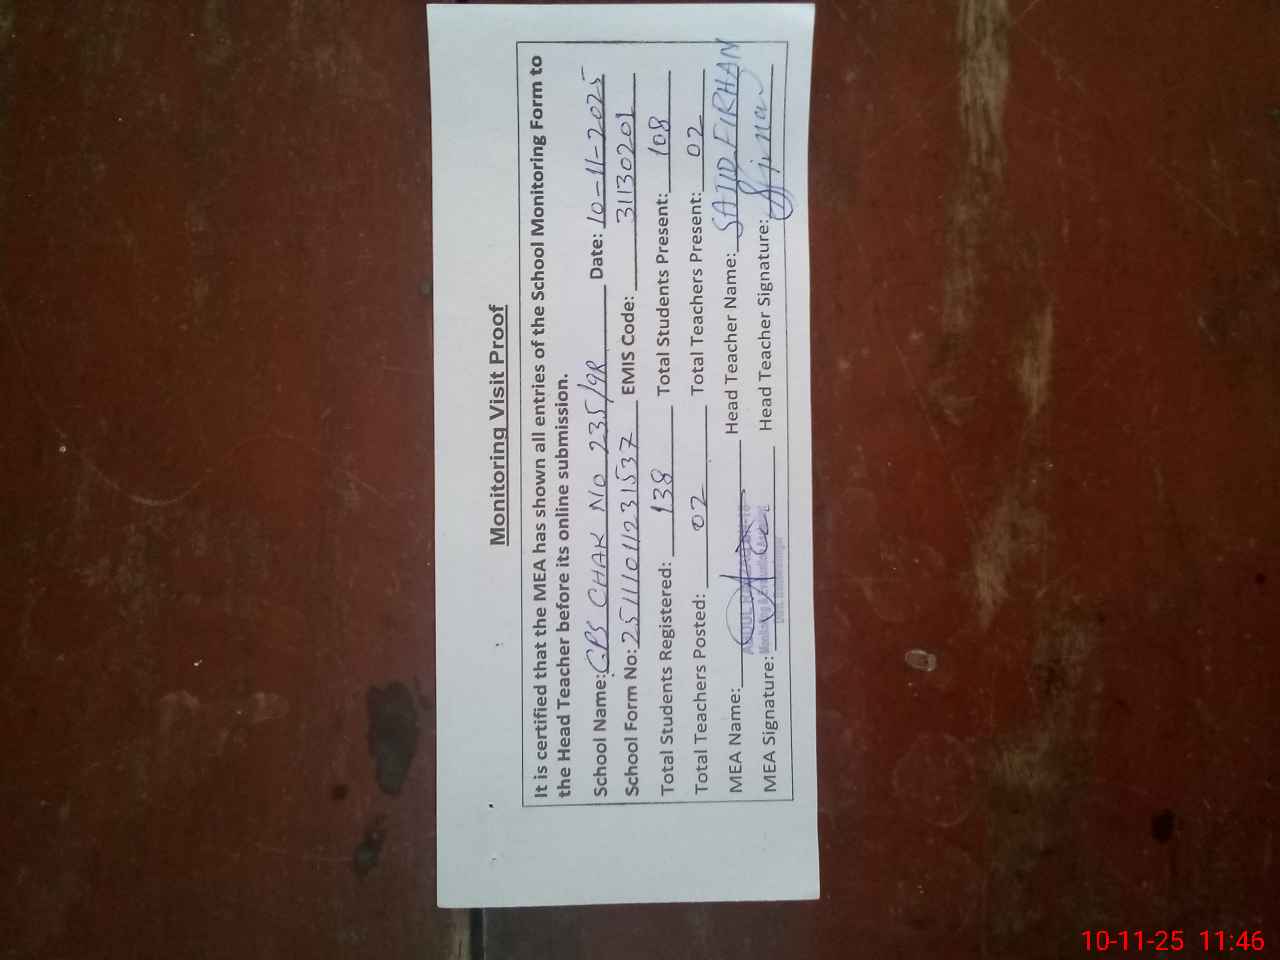 Monitoring Visit Proof
It is certified that the MEA has shown all entries of the School Monitoring Form to
the Head Teacher before its online submission.
School Name: GPS CHAK NO 235/9R Date: 10-11-2025
School Form No: 25111011231537 EMIS Code: 31130201
Total Students Registered: 138 Total Students Present: 108
Total Teachers Posted: 02 Total Teachers Present: 02
MEA Name: Head Teacher Name: SAJID FIRHAN
MEA Signature: Head Teacher Signature:
10-11-25 11:46